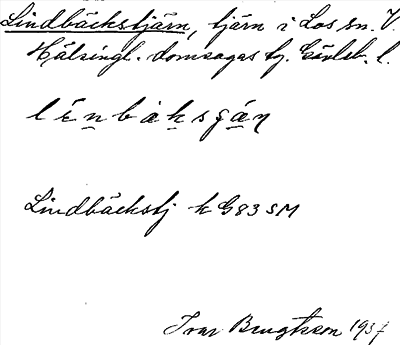 Lindbäckstjärn, tjärn i Los sn. V.
Hälsingl. domsagas tg. Gävleb. l.
lénbàksgán
Lindbäckstj k G83 SM
Ivar Bengtsson 1937